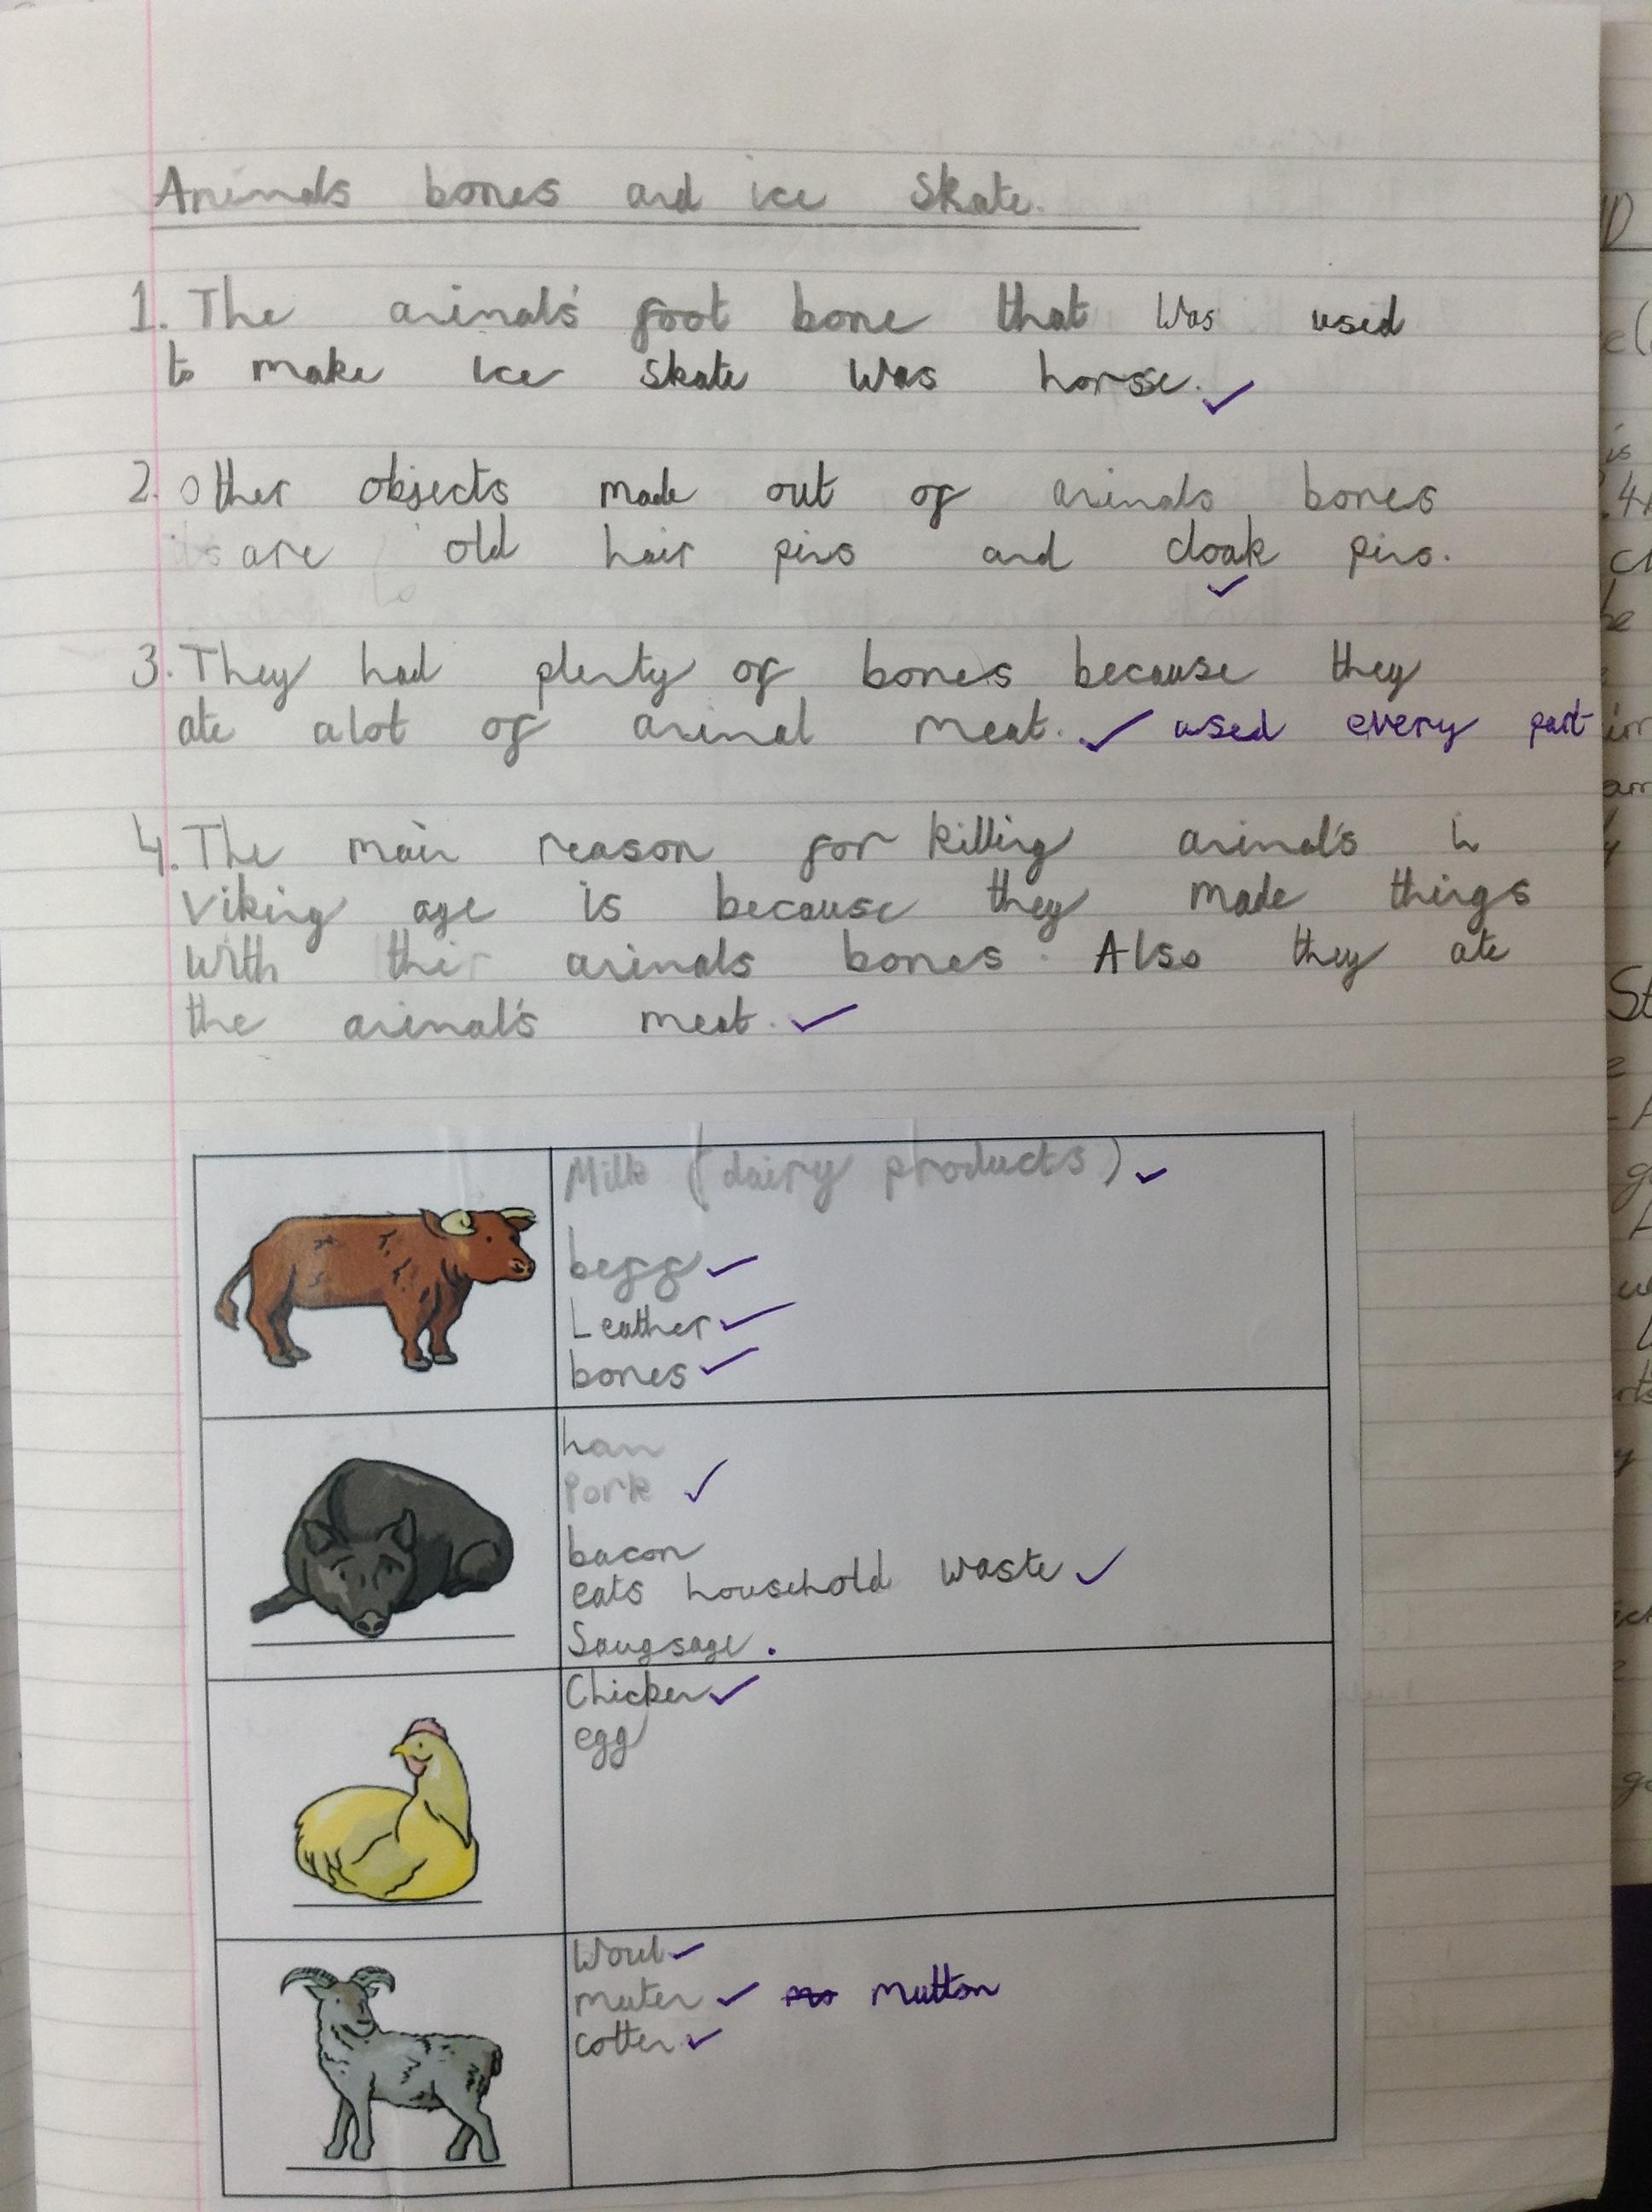 Animals bones and ice skate.
1. The animals' foot bone that was used
to make ice skate was horse.
2. Other objects made out of animals bones
are old hair pins and cloak pins.
3. They had plenty of bones because they
ate alot of animal meat. ✓ used every part
4. The main reason for killing animal's in
viking age is because they made things
with their animals bones. Also they ate
the animal's meat.
Milk (dairy products)
beff
Leather
bones
ham
Pork
bacon
eats household waste
Saugsage.
Chicken
egg
Woul
muten mutton
cotten